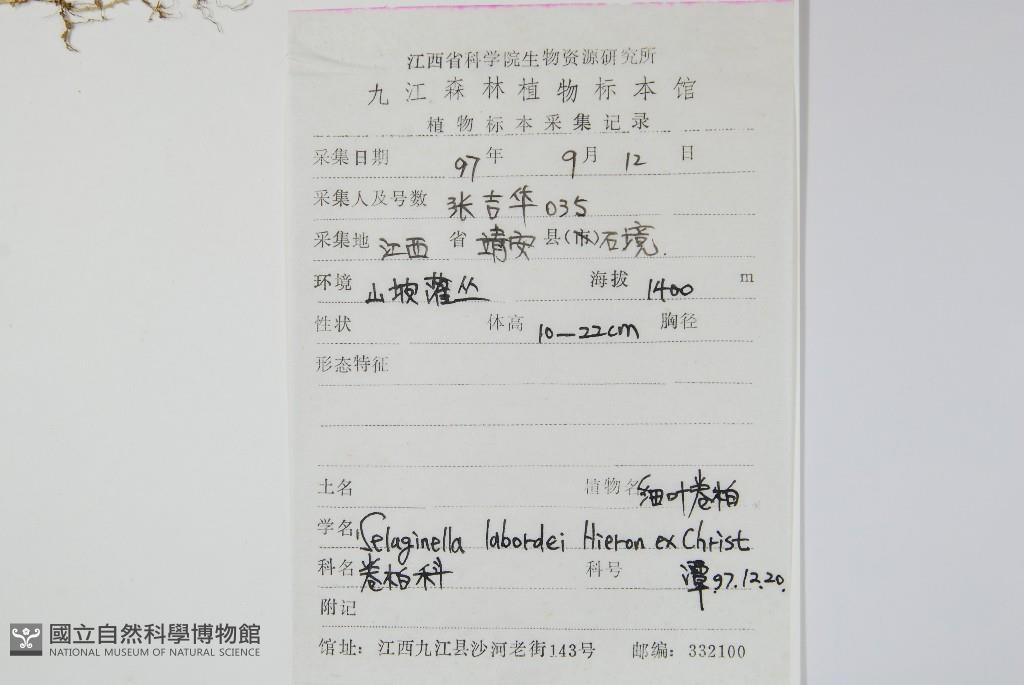 江西省科学院生物资源研究所
九江森林植物标本馆
植物标本采集记录
采集日期 97 年 9 月 12 日
采集人及号数 张吉华 035
采集地 江西 省 靖安 县(市) 石境.
环境 山坡灌丛 海拔 1400 m
性状 体高 10—22cm 胸径
形态特征
土名 植物名 细叶卷柏
学名 Selaginella labordei Hieron ex Christ
科名 卷柏科 科号 潭 97.12.20.
附记
馆址：江西九江县沙河老街143号 邮编：332100
國立自然科學博物館
NATIONAL MUSEUM OF NATURAL SCIENCE